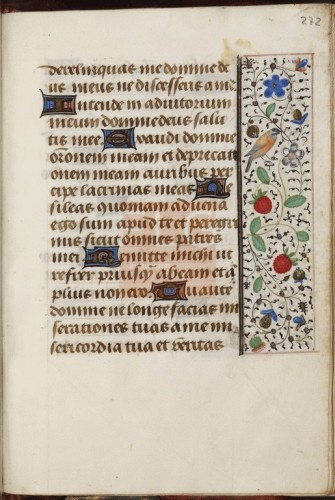 272
derelinquas me domine de
us meus ne discesseris a me
Intende in adiutorium
meum domine deus salu
tis mee. Exaudi domine
orõnem meam et deprecati
onem meam auribus per
cipe lacrimas meas Ne
sileas quoniam aduena
ego sum apud te et peregri
nus sicut omnes patres
mei Remitte michi ut
refrig̃er priusq̃ abeam et ã
plius non ero. Tu aut
domine ne longe facias mi
serationes tuas a me mi
sericordia tua et veritas